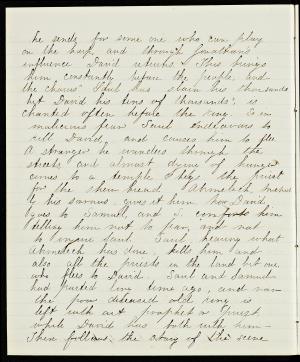 he sends for some one who can play
on the harp, and through Jonathan's
influence David returns. This brings
him constantly before the people and
the chorus "Saul has slain his thousands
but David his tens of thousands", is
chanted often before the king. In
malicious fear Saul endeavors to
kill David, and causes him to flee
A stranger he wanders through the
streets and almost dying of hunger
comes to a temple & begs the priest
for the shew bread Ahimelech
by his gives it him Now David
goes to Samuel, and S. comforts him
telling him not to fear, and not
to Saul, hearing what
Ahimelech has done, kills him and
also all the priests in the land but one,
who flees to David. Saul and Samuel
had parted long time ago, and now
the poor old king is
left with out prophet or Priest,
while David has both with him—
Then follows the story of the scene